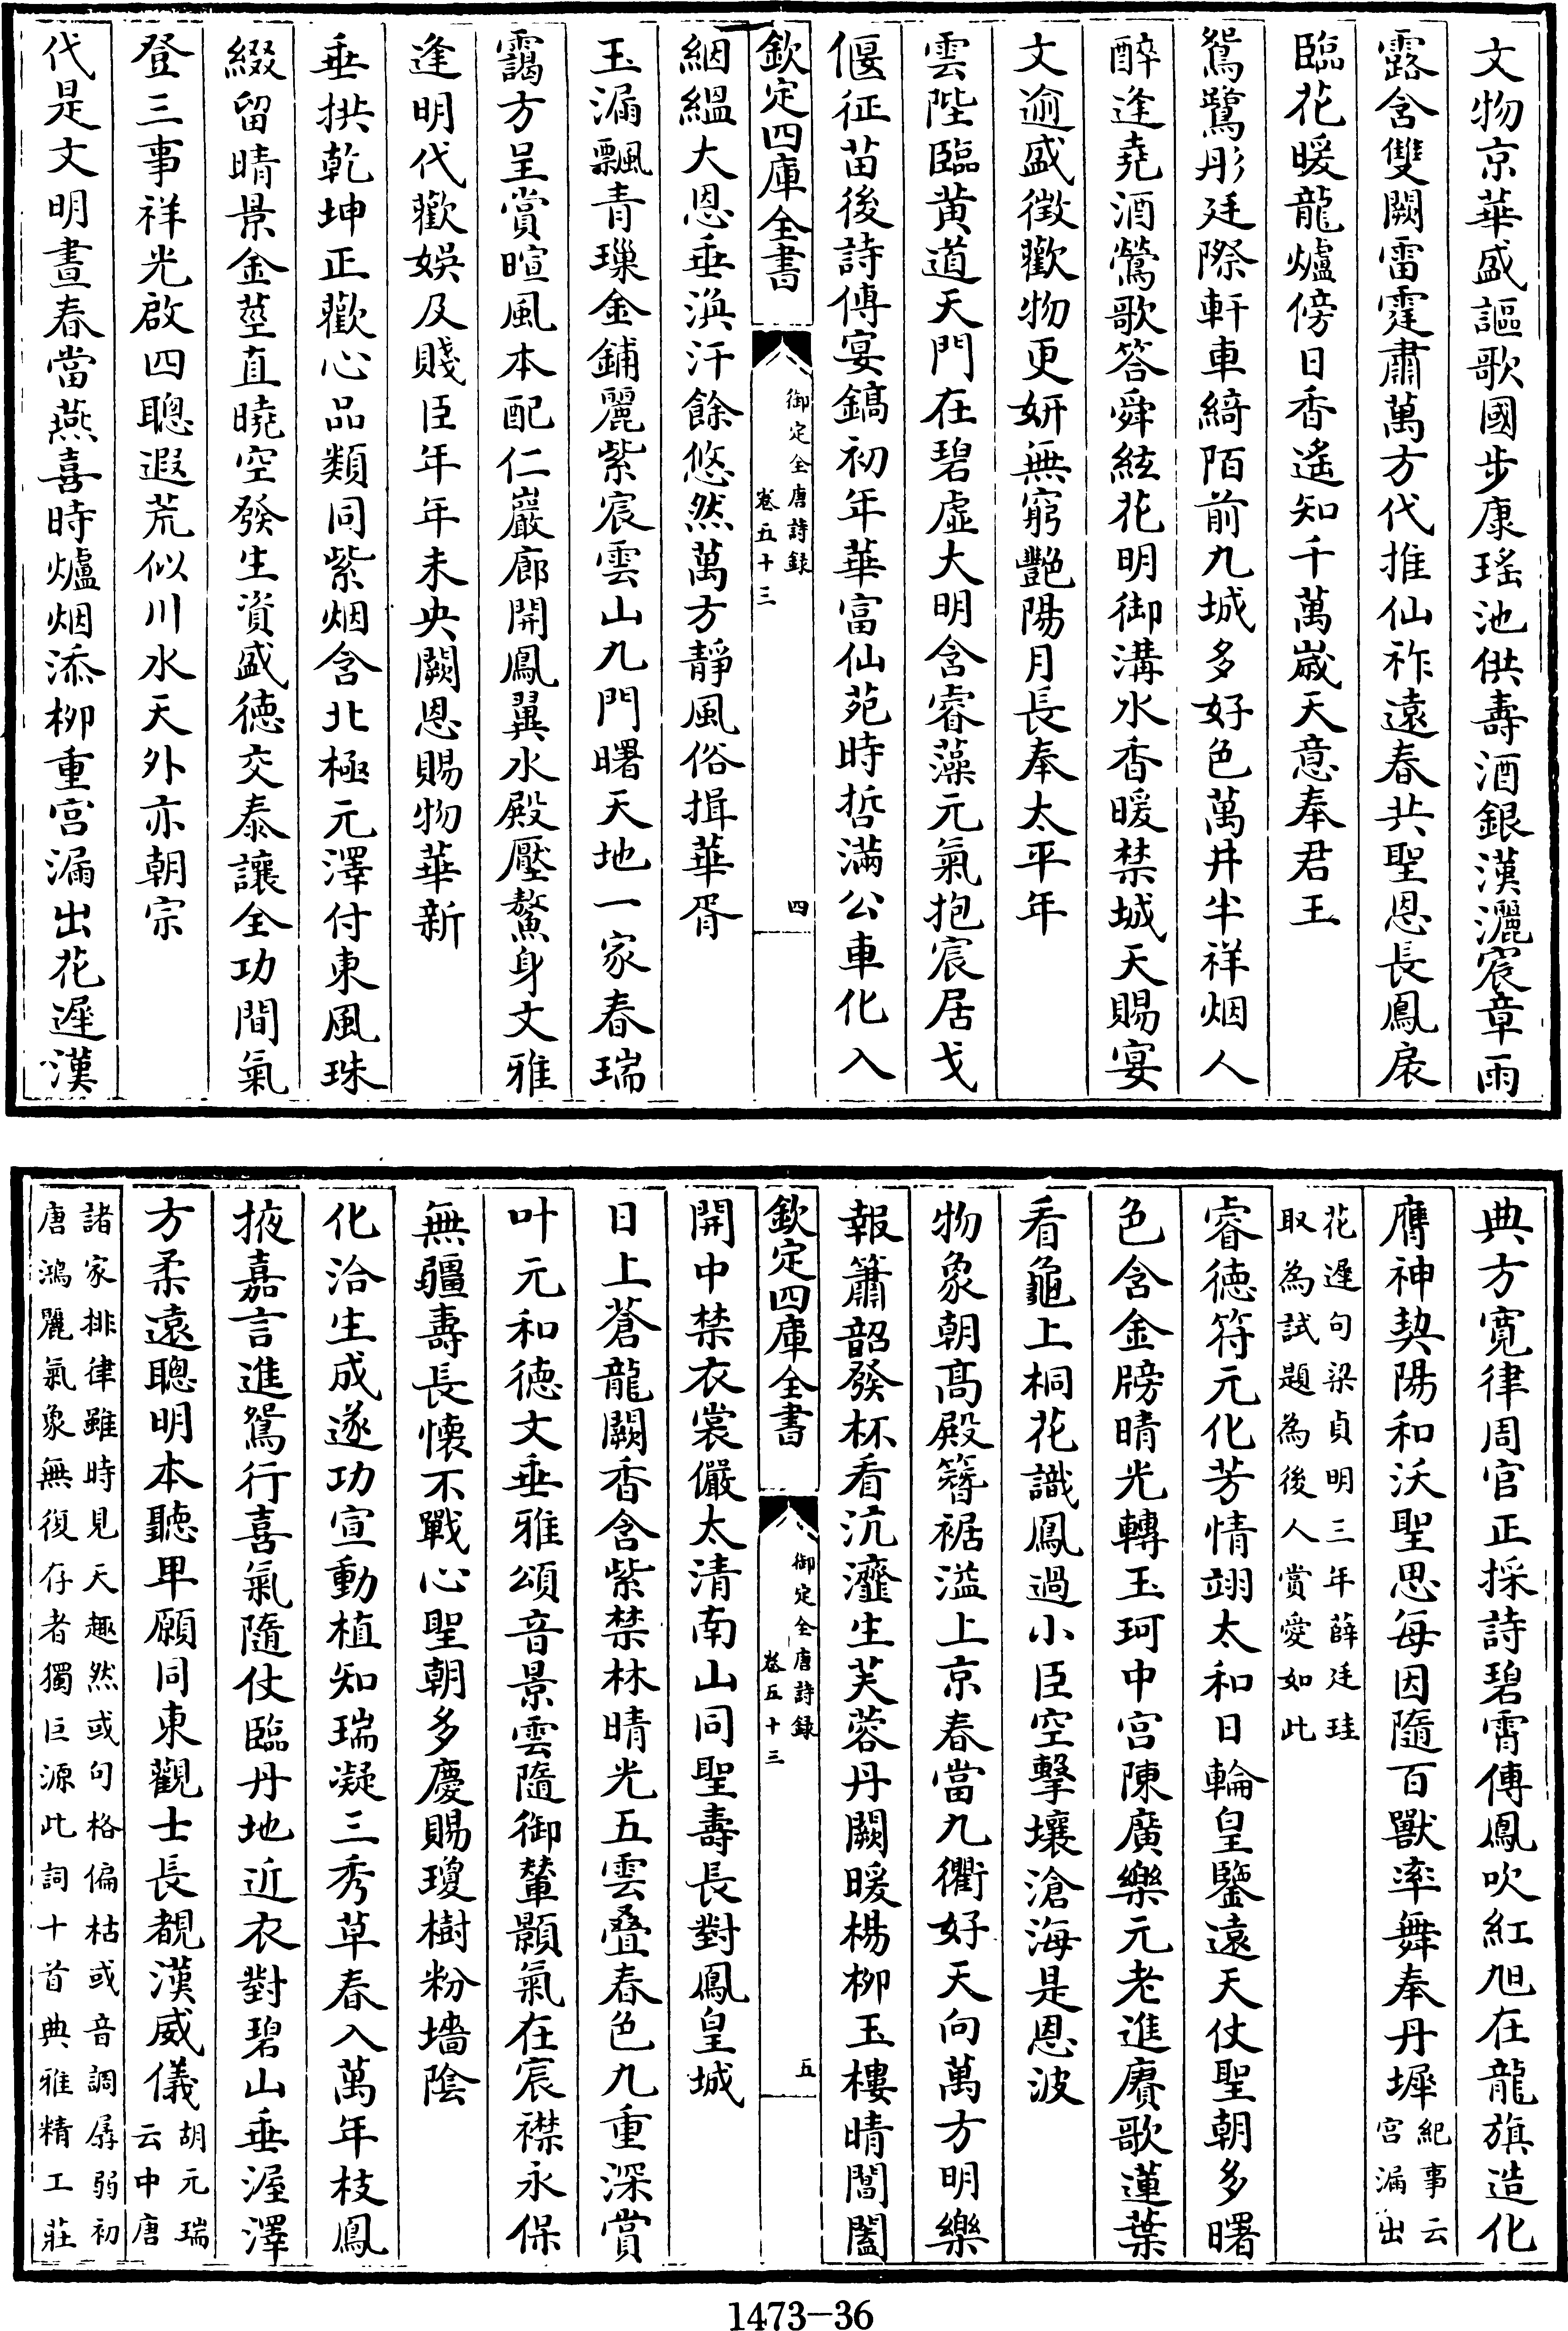 文物京華盛謳歌國步康瑤池供壽酒銀漢灑宸章雨
露含雙闕雷霆肅萬方代推仙祚遠春共聖恩長鳳扆
臨花暖龍爐傍日香遙知千萬歲天意奉君王
鴛鷺彤廷際軒車綺陌前九城多好色萬井半祥烟人
醉逢堯酒鶯歌答舜絃花明御溝水香暖禁城天賜宴
文逾盛徴歡物更妍無窮艷陽月長奉太平年
雲陛臨黄道天門在碧虛大明含睿藻元氣抱宸居戈
偃征苗後詩傳宴鎬初年華富仙苑時哲滿公車化入
欽定四庫全書
御定全唐詩録
卷五十三
四
絪縕大恩垂渙汗餘悠然萬方靜風俗揖華胥
玉漏飄青璅金鋪麗紫宸雲山九門曙天地一家春瑞
靄方呈賞暄風本配仁巖廊開鳳翼水殿壓鰲身文雅
逢明代歡娛及賤臣年年未央闕恩賜物華新
垂拱乾坤正歡心品類同紫烟含北極元澤付東風珠
綴留晴景金莖直曉空發生資盛德交泰讓全功間氣
登三事祥光啟四聰遐荒似川水天外亦朝宗
代是文明晝春當燕喜時爐烟添柳重宫漏出花遲漢
典方寛律周官正採詩碧霄傳鳳吹紅旭在龍旗造化
膺神契陽和沃聖思每因隨百獸率舞奉丹墀
紀事云
宫漏出
花遲句梁貞明三年薛廷珪
取為試題為後人賞愛如此
睿德符元化芳情翊太和日輪皇鑒遠天仗聖朝多曙
色含金牓晴光轉玉珂中宫陳廣樂元老進賡歌蓮葉
看龜上桐花識鳳過小臣空擊壤滄海是恩波
物象朝髙殿簪裾溢上京春當九衢好天向萬方明樂
報簫韶發杯看沆瀣生芙蓉丹闕暖楊柳玉樓晴閶闔
欽定四庫全書
御定全唐詩録
卷五十三
五
開中禁衣裳儼太清南山同聖壽長對鳳皇城
日上蒼龍闕香含紫禁林晴光五雲叠春色九重深賞
叶元和德文垂雅頌音景雲隨御輦顥氣在宸襟永保
無疆壽長懷不戰心聖朝多慶賜瓊樹粉墻陰
化洽生成遂功宣動植知瑞凝三秀草春入萬年枝鳳
掖嘉言進鴛行喜氣隨仗臨丹地近衣對碧山垂渥澤
方柔遠聰明本聽卑願同東觀士長覩漢威儀
胡元瑞
云中唐
諸家排律雖時見天趣然或句格偏枯或音調孱弱初
唐鴻麗氣象無復存者獨巨源此詞十首典雅精工莊
1473-36